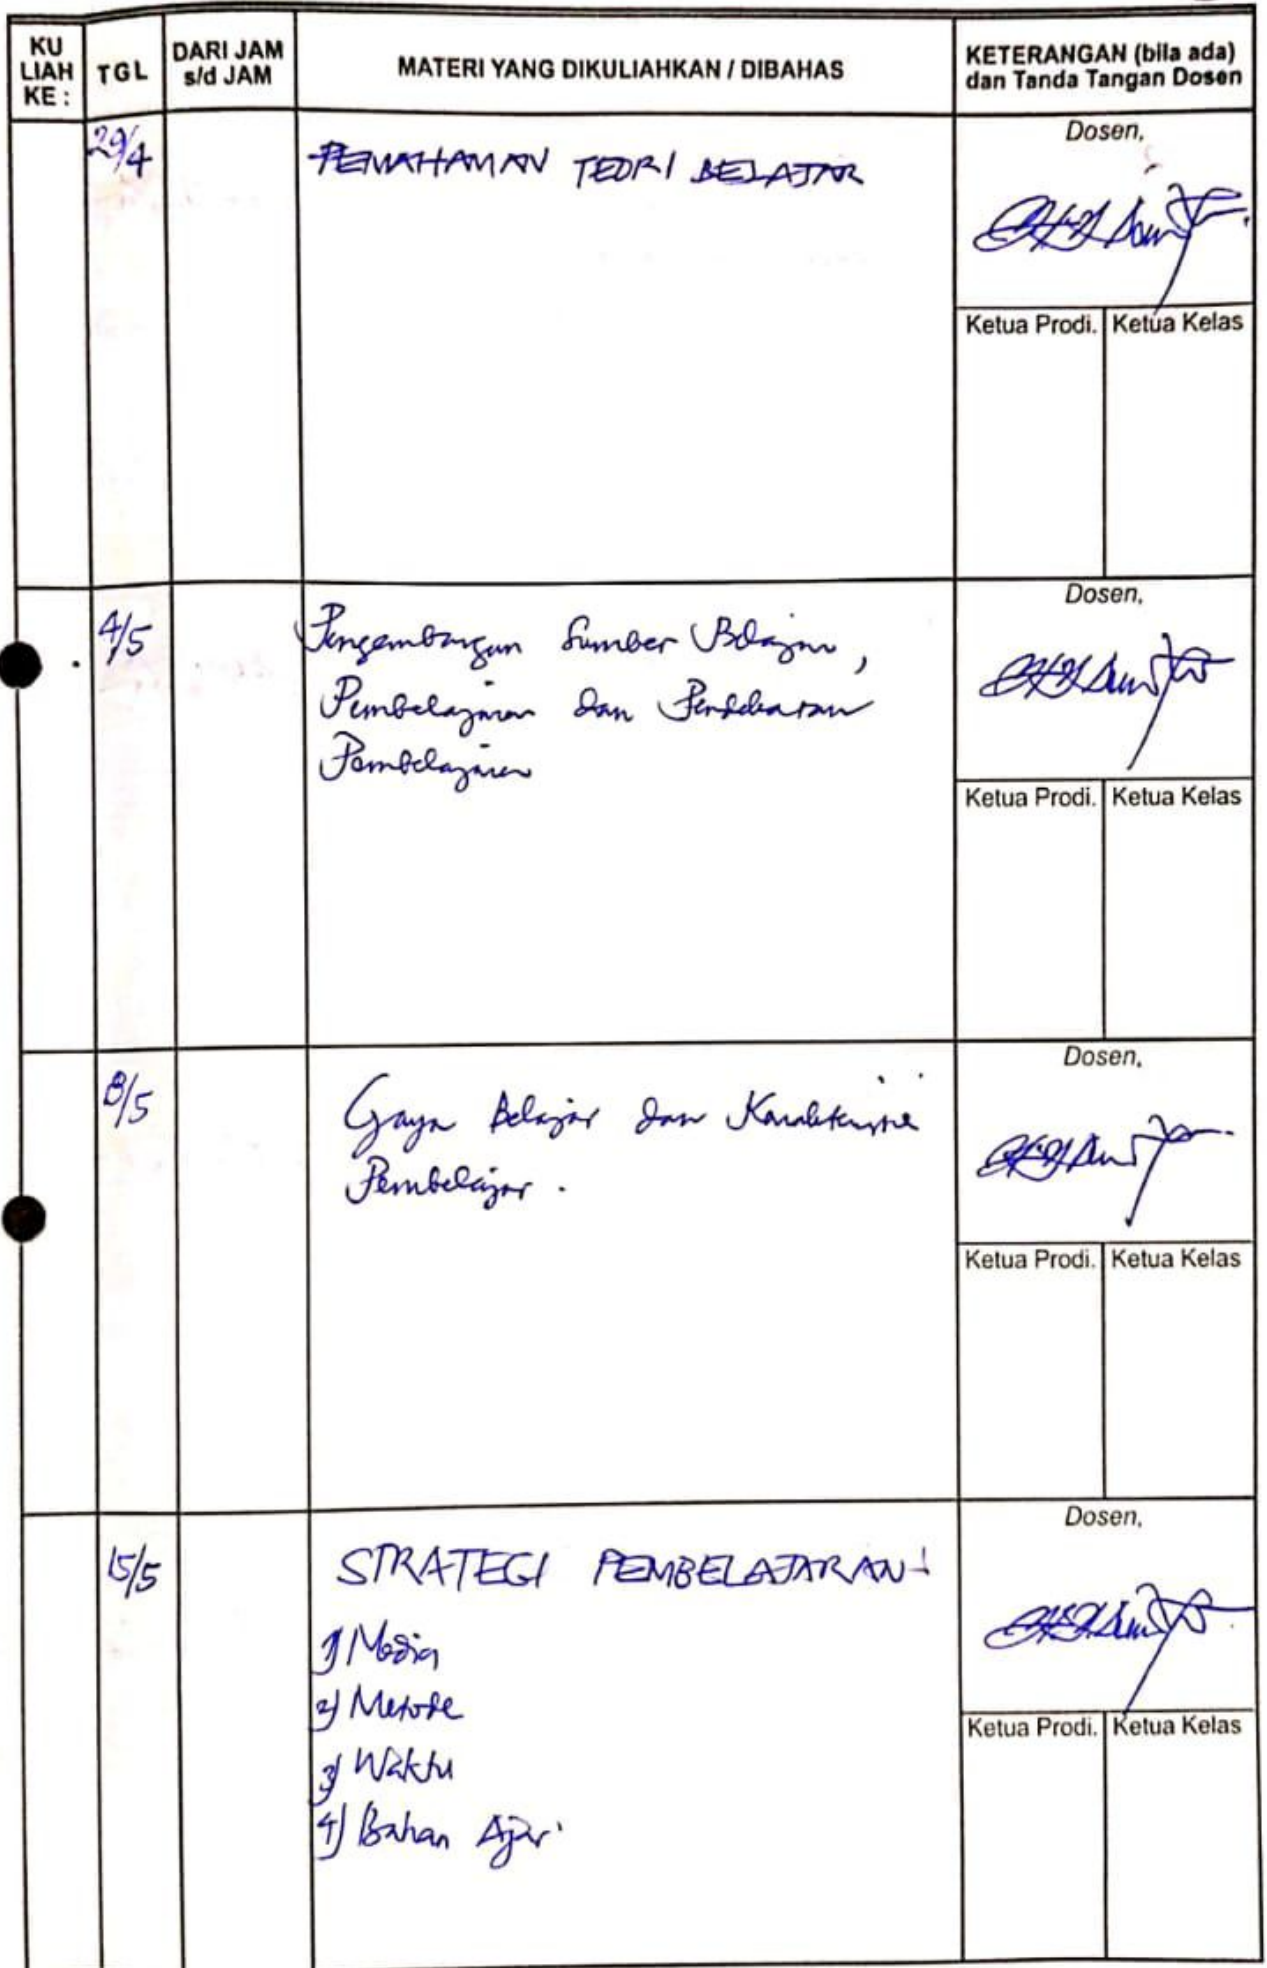 KU LIAH KE :
TGL
DARI JAM s/d JAM
MATERI YANG DIKULIAHKAN / DIBAHAS
KETERANGAN (bila ada) dan Tanda Tangan Dosen
29/4
PEMAHAMAN TEORI BELAJAR
Dosen,
Ketua Prodi.
Ketua Kelas
4/5
Pengembangan Sumber Belajar,
Pembelajaran dan Pendekatan
Pembelajaran
Dosen,
Ketua Prodi.
Ketua Kelas
8/5
Gaya Belajar dan Karakteristik
Pembelajar.
Dosen,
Ketua Prodi.
Ketua Kelas
15/5
STRATEGI PEMBELAJARAN
1) Media
2) Metode
3) Waktu
4) Bahan Ajar
Dosen,
Ketua Prodi.
Ketua Kelas